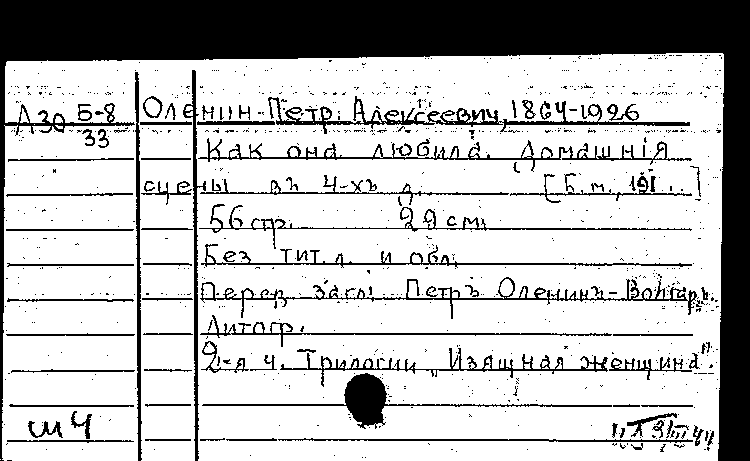 Л30 Б-8/33 Оленин, Петр Алексеевич, 1864-1926
Как она любила. Домашнія
сцены въ 4-хъ д. [Б.м., 191..]
56 стр. 29 см.
Без тит. л. и обл.
Перед загл: Петръ Оленинъ-Волгаръ.
Литогр.
2-я ч. Трилогии „Изящная женщина".
ш 4